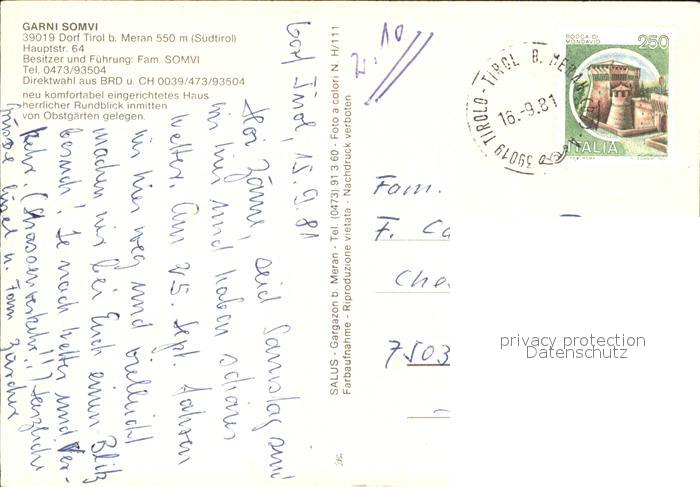 GARNI SOMVI
39019 Dorf Tirol b. Meran 550 m (Südtirol)
Hauptstr. 64
Besitzer und Führung: Fam. SOMVI
Tel. 0473/93504
Direktwahl aus BRD u. CH 0039/473/93504
neu komfortabel eingerichtetes Haus
herrlicher Rundblick inmitten
von Obstgärten gelegen.
Dorf Tirol, 15.9.81
Hoi Zäme, seid Samstag sind
wir hier und haben schönes
Wetter. Am 25. Sept. fahren
wir hier weg und vielleicht
machen wir bei Euch einen Blitz
besuch! Je nach Wetter und Ver-
kehr. (Strassenverkehr!!) Herzliche
Grüsse u. Fam. Zürcher
2.10
SALUS - Gargazon b. Meran - Tel. (0473) 91 3 60 - Foto a colori N. H/111
Farbaufnahme - Riproduzione vietata - Nachdruck verboten
ROCCA DI
MONDAVIO
250
ITALIA
39019 TIROLO - TIROL B. MERAN
16.-9.81
Fam.
F. Ca
Che
7503
privacy protection
Datenschutz